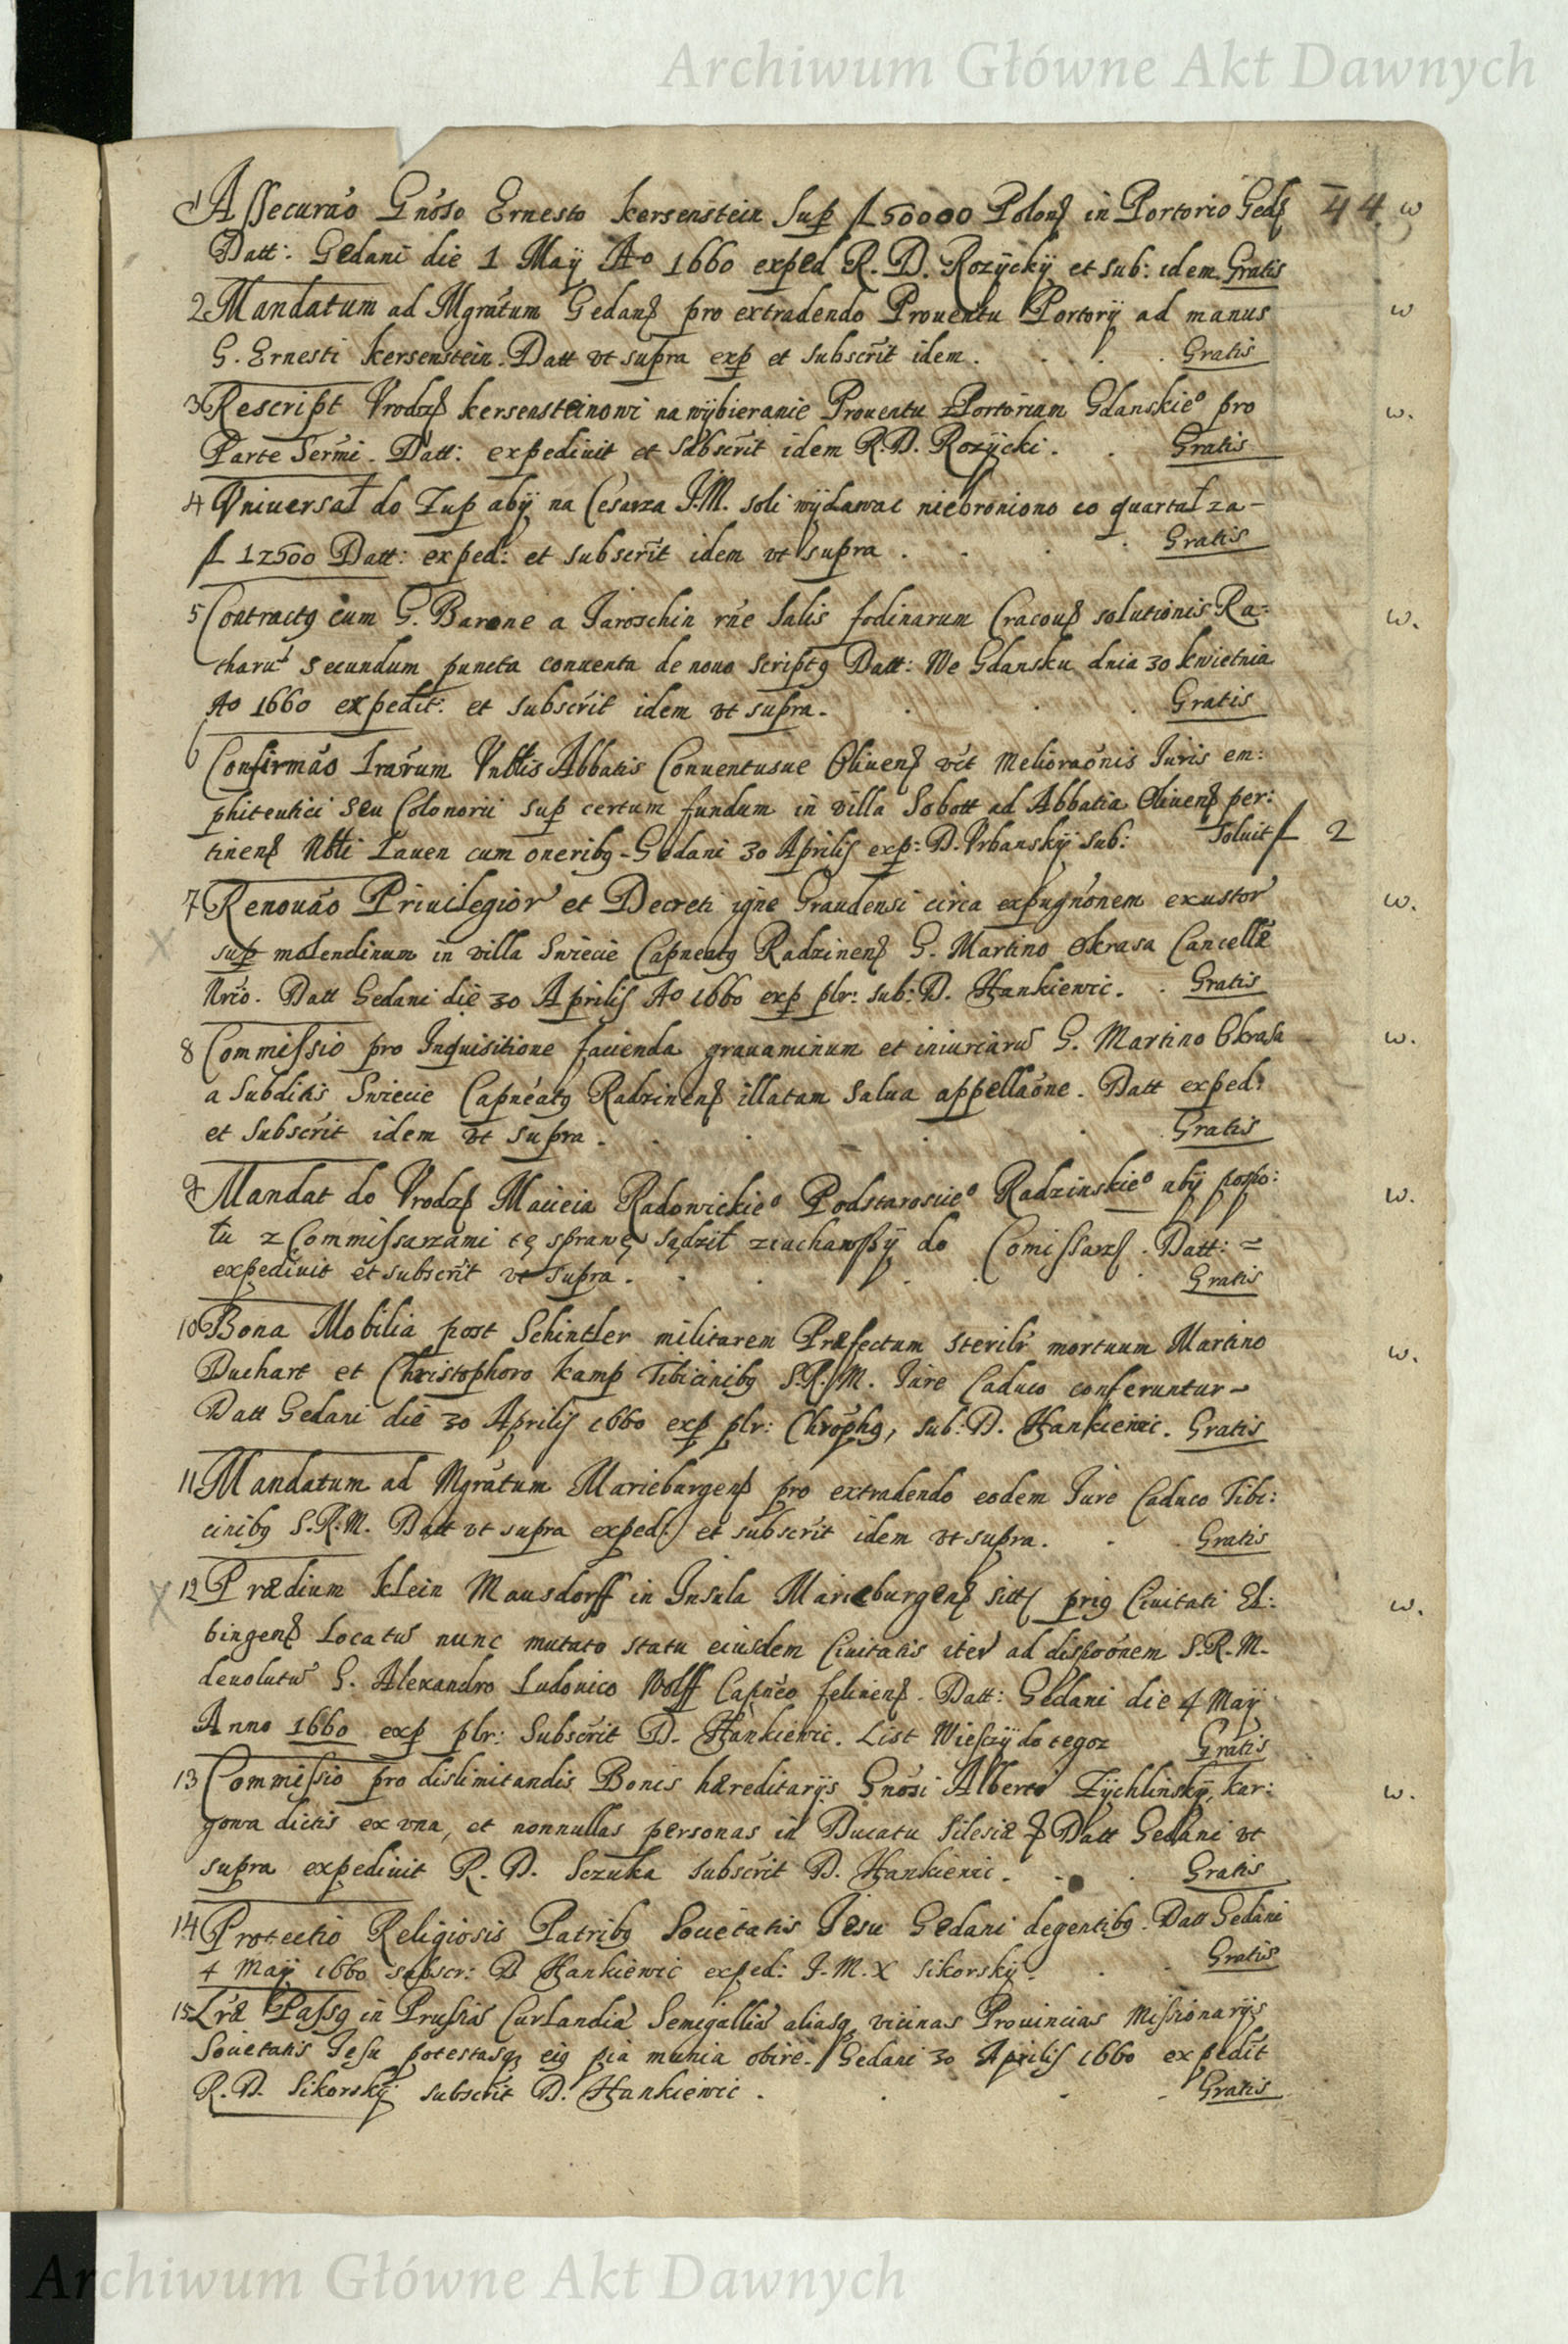 Archiwum Główne Akt Dawnych
44
1 Assecurao Gnoso Ernesto Kersenstein sup fl 50000 Polon in Portorio Ged w
Datt: Gedani die 1 Maÿ Ao 1660 exped R. D. Rozÿckÿ et sub: idem Gratis
2 Mandatum ad Mgratum Gedan pro extradendo Prouentu Portorÿ ad manus w
G. Ernesti Kersenstein. Datt vt supra exp et subscrit idem. Gratis
3 Rescript Vrodz Kersensteinowi na wÿbieranie Prouentu Portorium Gdanskieo pro w.
Parte Sermi. Datt: expediuit et subscrit idem R. D. Rozÿcki. Gratis
4 Vniversał do Zup abÿ na Cesarza J.M. soli wÿdawac niebroniono co quartał za-
fl 12500 Datt: exped: et subscrit idem vt supra. Gratis
5 Contractq cum G. Barone a Jaroschin rne Salis fodinarum Cracou solutionis Ra- w.
tharu secundum puncta conuenta de nouo scriptq Datt: We Gdansku dnia 30 kwietnia
Ao 1660 expedit: et subscrit idem vt supra. Gratis
6 Confirmao Lrarum Vnblis Abbatis Conuentusue Oliuen vct melioraonis Iuris em:
phiteutici seu Colonorii sup certum fundum in villa Sobott ad Abbatia Oliuen per:
tinen Nbli Lauen cum oneribq - Gedani 30 Aprilis exp: D. Vrbanskÿ sub: Soluit fl 2
7 Renouao Priuilegior et Decreti igne Graudensi circa expugnonem exustor w.
sup molendinum in villa Swiecie Capneatq Radzinen G. Martino Okrasa Cancellae
Nrio. Datt Gedani die 30 Aprilis Ao 1660 exp plr: sub: D. Hankiewic. Gratis
8 Commissio pro Inquisitione facienda grauaminum et iniuriaru G. Martino Okrasa w.
a subditis Swiecie Capneatq Radzinen illatam salua appellaone. Datt exped:
et subscrit idem vt supra. Gratis
9 Mandat do Vrodz Macieia Radowickieo Podstarosciieo Radzinskieo abÿ pospo: w.
łu z Commissarzami tę sprawę sądził ziachawszÿ do Comissarz. Datt: =
expediuit et subscrit vt supra. Gratis
10 Bona Mobilia post Schintler militarem Præfectum sterilr mortuum Martino w.
Duchart et Christophoro Kamp Tibicinibq S.R.M. Iure Caduco conferuntur -
Datt Gedani die 30 Aprilis 1660 exp plr: Chrophq, sub: D. Hankiewic. Gratis
11 Mandatum ad Mgratum Marieburgen pro extradendo eodem Iure Caduco Tibi:
cinibq S.R.M. Datt vt supra exped: et subscrit idem vt supra. Gratis
12 Prædium Klein Mausdorff in Insula Marieburgen sitt priq Ciuitati El: w.
bingen Locatu nunc mutato statu eiusdem Ciuitatis iter ad dispoonem S.R.M.
deuolutu G. Alexandro Ludouico Wolff Capneo felinen. Datt: Gedani die 4 Maÿ
Anno 1660 exp plr: Subscrit D. Hankiewic. List Wieszÿ do tegoz Gratis
13 Commissio pro dislimitandis Bonis hæreditarÿs Gnosi Alberti Zÿchlinskÿ, Kar: w.
gowa dictis ex vna, et nonnullas personas in Ducatu Silesiæ Datt Gedani vt
supra expediuit R. D. Sczuka subscrit D. Hankiewic. Gratis
14 Protectio Religiosis Patribq Societatis Jesu Gedani degentibq. Datt Gedani
4 Maÿ 1660 subscr: D Hankiewic exped: J.M.X Sikorskÿ. Gratis
15 Lræ Passq in Prussia Curlandia Semigallia aliasq vicinas Prouincias Missionarÿs
Societatis Jesu potestasq eiq pia munia obire. Gedani 30 Aprilis 1660 expedit
R. D. Sikorskÿ subscrit D. Hankiewic. Gratis
Archiwum Główne Akt Dawnych